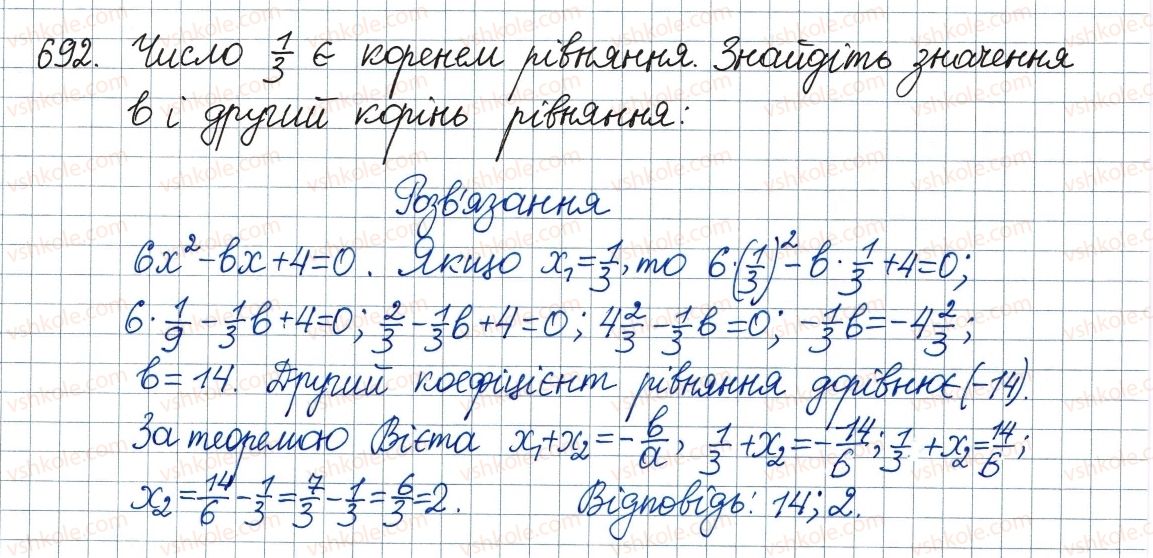 692. Число 1/3 є коренем рівняння. Знайдіть значення
в і другий корінь рівняння:
Розв'язання
6x² - вx + 4 = 0. Якщо x₁ = 1/3, то 6·(1/3)² - в · 1/3 + 4 = 0;
6 · 1/9 - 1/3 в + 4 = 0; 2/3 - 1/3 в + 4 = 0; 4 2/3 - 1/3 в = 0; - 1/3 в = - 4 2/3;
в = 14. Другий коефіцієнт рівняння дорівнює (-14).
За теоремою Вієта x₁ + x₂ = - в/a, 1/3 + x₂ = - -14/6; 1/3 + x₂ = 14/6;
x₂ = 14/6 - 1/3 = 7/3 - 1/3 = 6/3 = 2. Відповідь: 14; 2.